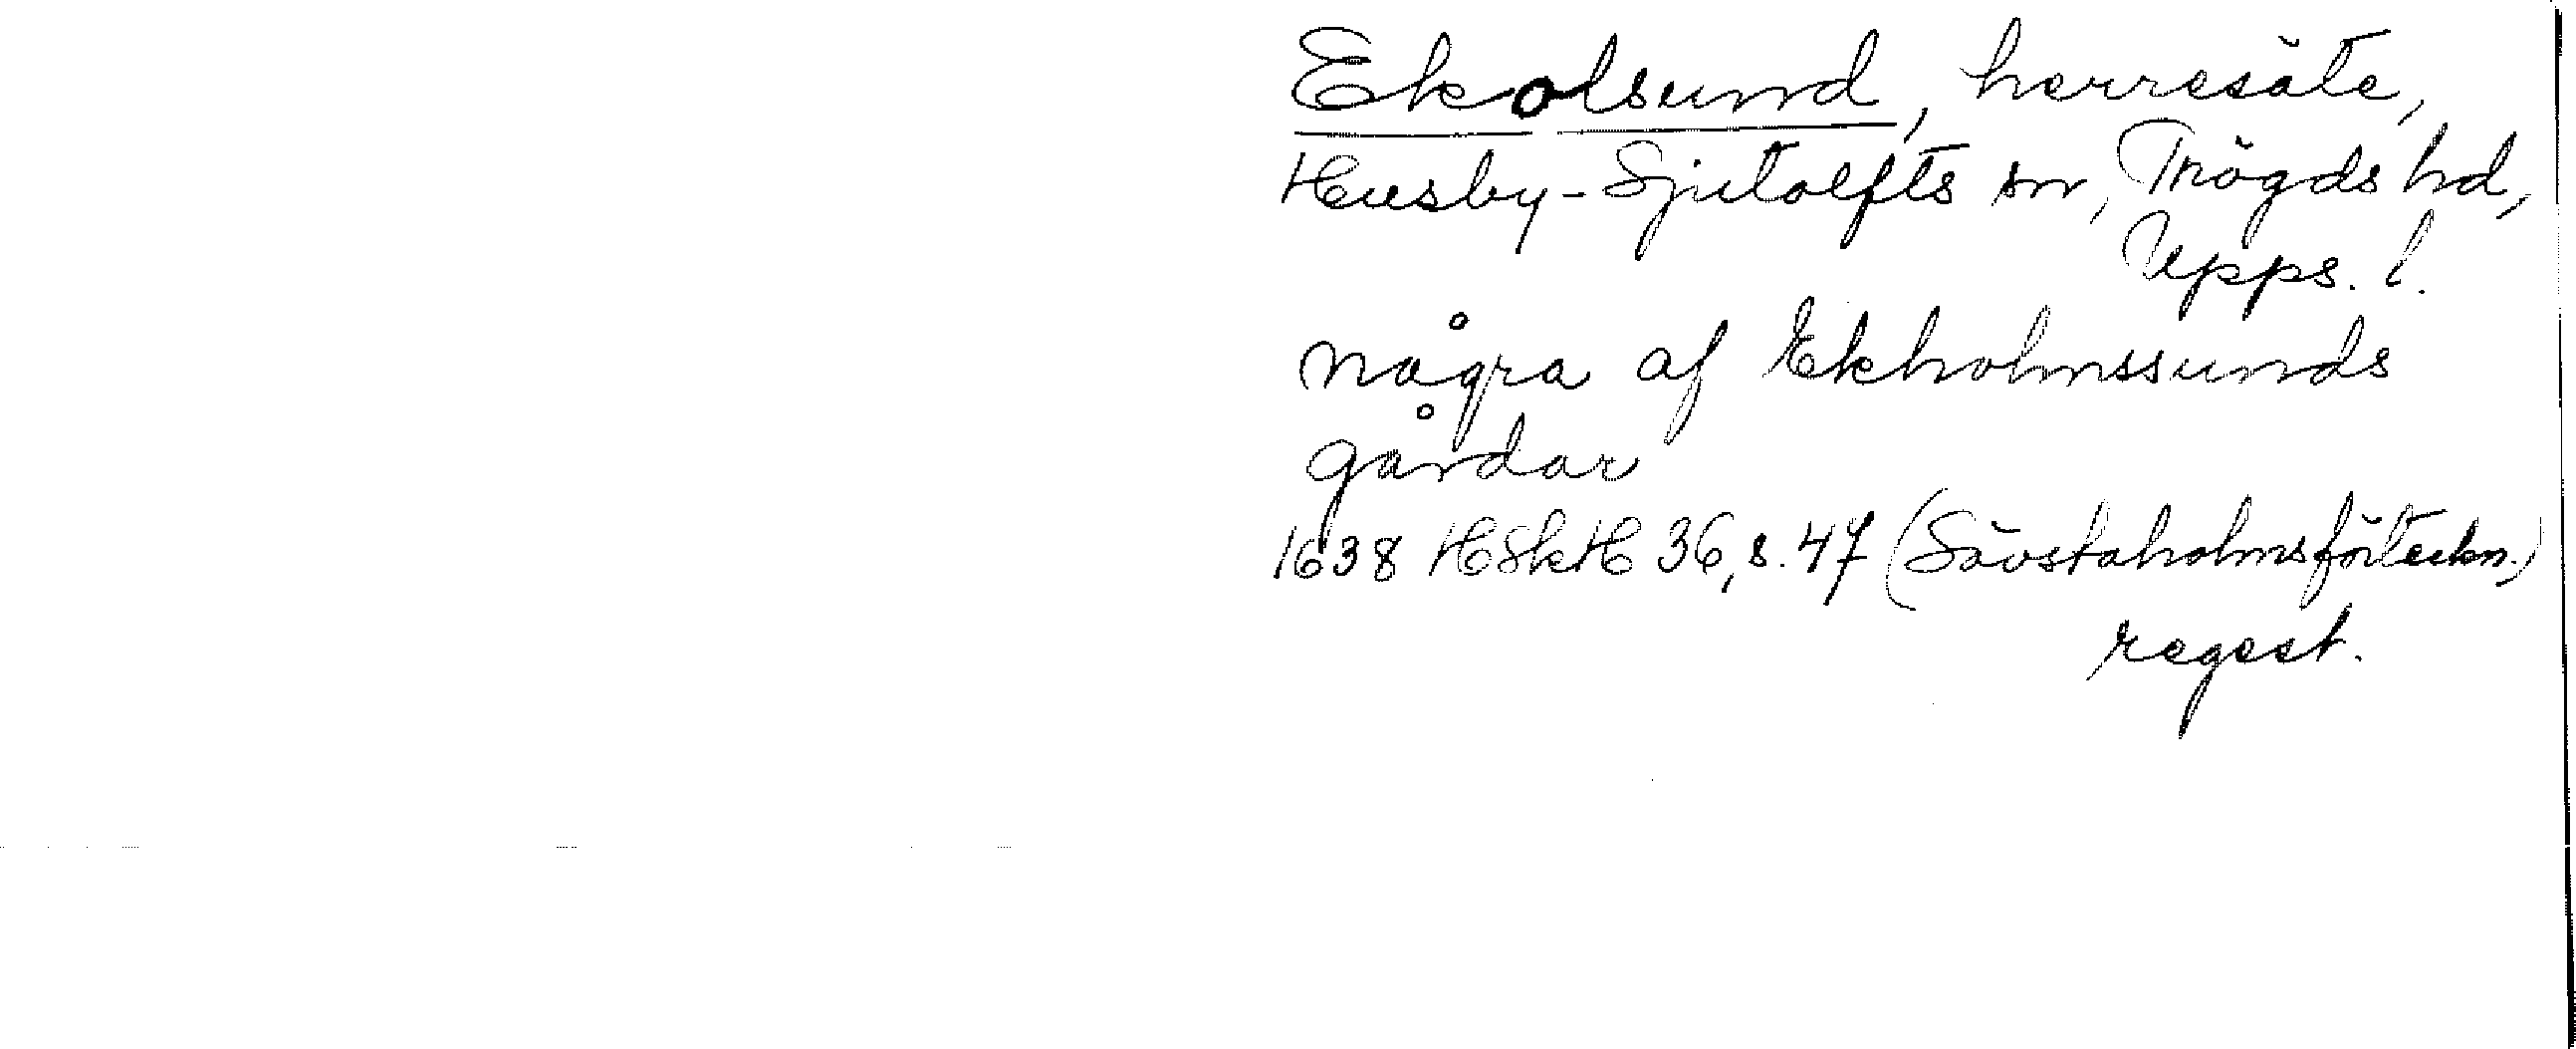 Ekolsund, herresäte,
Husby-Sjutolfts sn, Trögds hd,
Upps. l.
några af Ekholmssunds
gårdar
1638 HSkH 36, s. 47 (Sävstaholmsförteckn.)
regest.